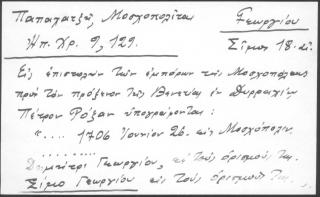 Παπαλατζῶ, Μοσχοπολῖται Γεωργίου
Ἠπ. Χρ. 9, 129. Σῖμος 18. αἰ.
Εἰς ἐπιστολὴν τῶν ἐμπόρων τῆς Μοσχοπόλεως
πρὸς τὸν πρόξενον τῆς Βενετίας ἐν Δυρραχίῳ
Πέτρον Ρόζαν ὑπογράφονται:
"... 1706 Ἰουνίου 26. εἰς Μοσχόπολιν.
. . . . . . . .
Γεωργίου, εἰς τοὺς ὁρισμούς της.
Σῖμο Γεωργίου εἰς τοὺς ὁρισμούς της.